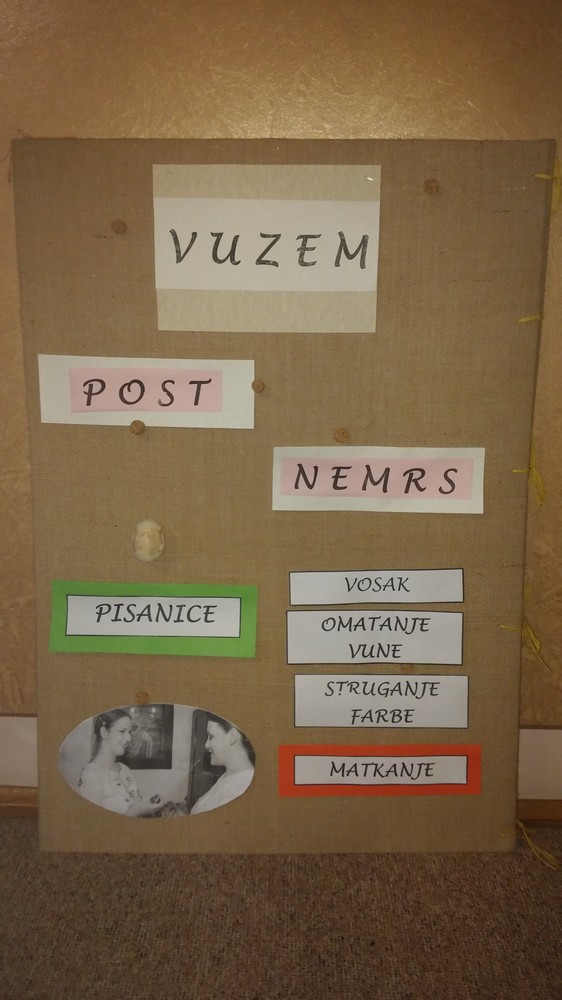 VUZEM
POST
NEMRS
PISANICE
VOSAK
OMATANJE
VUNE
STRUGANJE
FARBE
MATKANJE